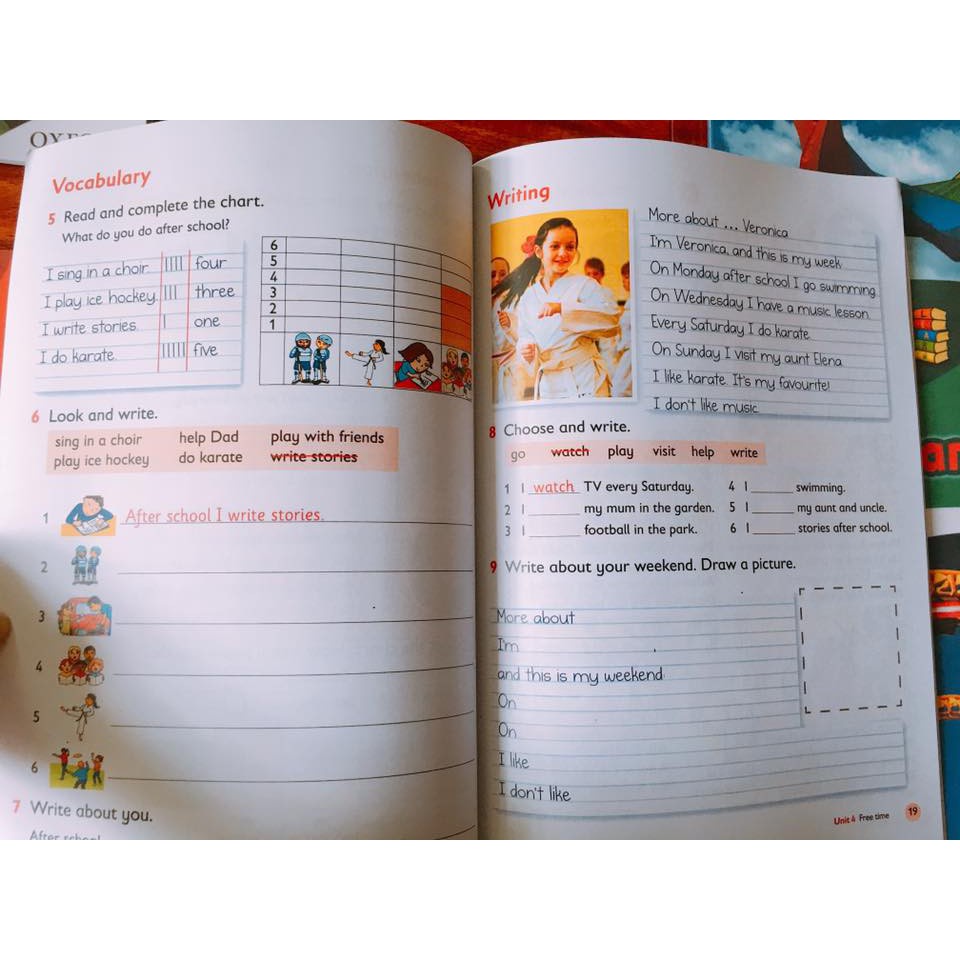 Vocabulary
5 Read and complete the chart.
What do you do after school?
I sing in a choir. four
I play ice hockey. three
I write stories. one
I do karate. five
6
5
4
3
2
1
6 Look and write.
sing in a choir help Dad play with friends
play ice hockey do karate write stories
1 After school I write stories.
2
3
4
5
6
7 Write about you.
After school
Writing
More about ... Veronica
I'm Veronica, and this is my week.
On Monday after school I go swimming.
On Wednesday I have a music lesson.
Every Saturday I do karate.
On Sunday I visit my aunt Elena.
I like karate. It's my favourite!
I don't like music.
8 Choose and write.
go watch play visit help write
1 I watch TV every Saturday.
2 I ______ my mum in the garden.
3 I ______ football in the park.
4 I ______ swimming.
5 I ______ my aunt and uncle.
6 I ______ stories after school.
9 Write about your weekend. Draw a picture.
More about
I'm
and this is my weekend.
On
On
I like
I don't like
Unit 4 Free time 19